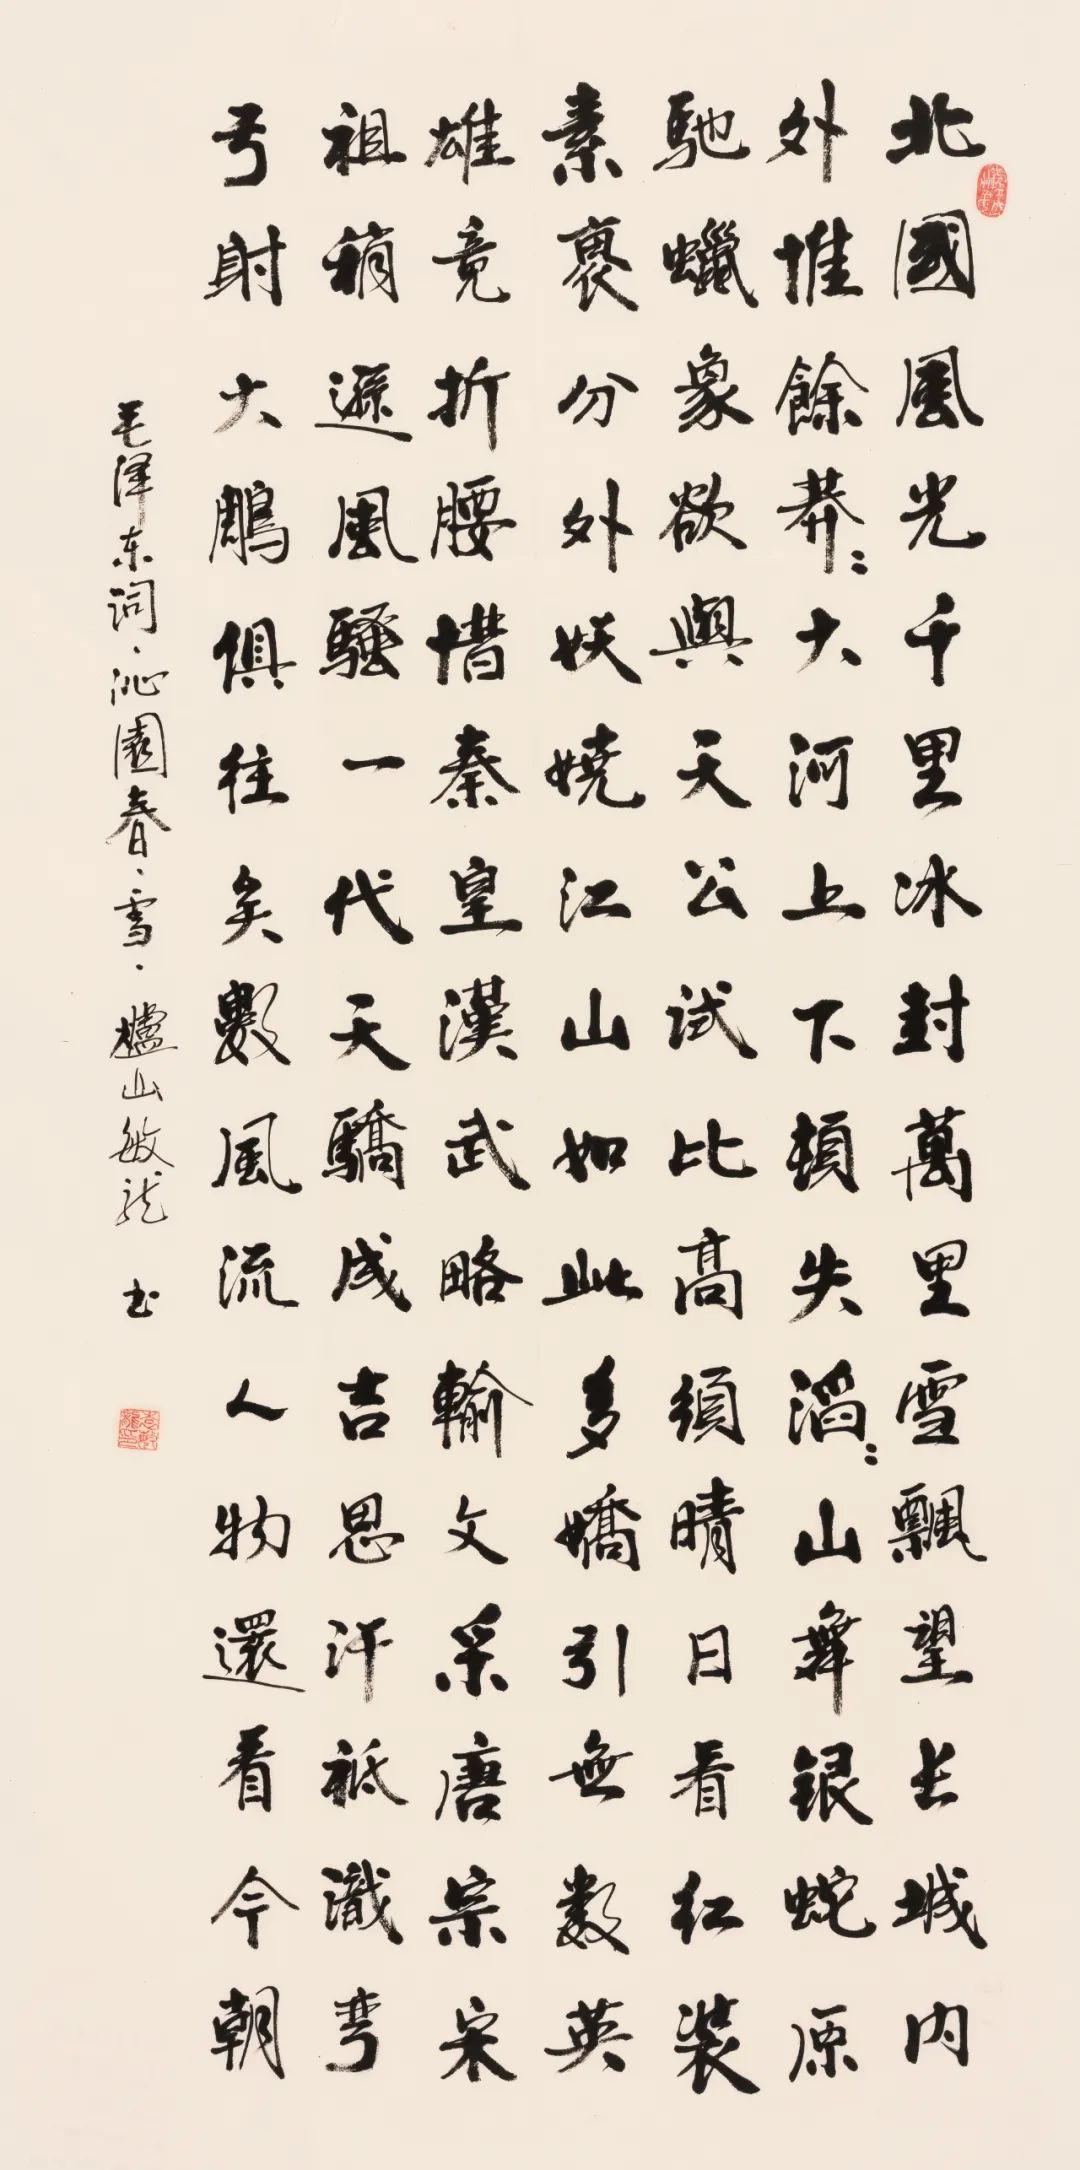 北國風光千里冰封萬里雪飄望長城內
外惟餘莽〻大河上下頓失滔〻山舞銀蛇原
馳蠟象欲與天公試比高須晴日看紅裝
素裹分外妖嬈江山如此多嬌引無數英
雄竟折腰惜秦皇漢武略輸文采唐宗宋
祖稍遜風騷一代天驕成吉思汗祗識彎
弓射大鵰俱往矣數風流人物還看今朝
毛泽东词、沁園春、雪、櫨山敏龙书